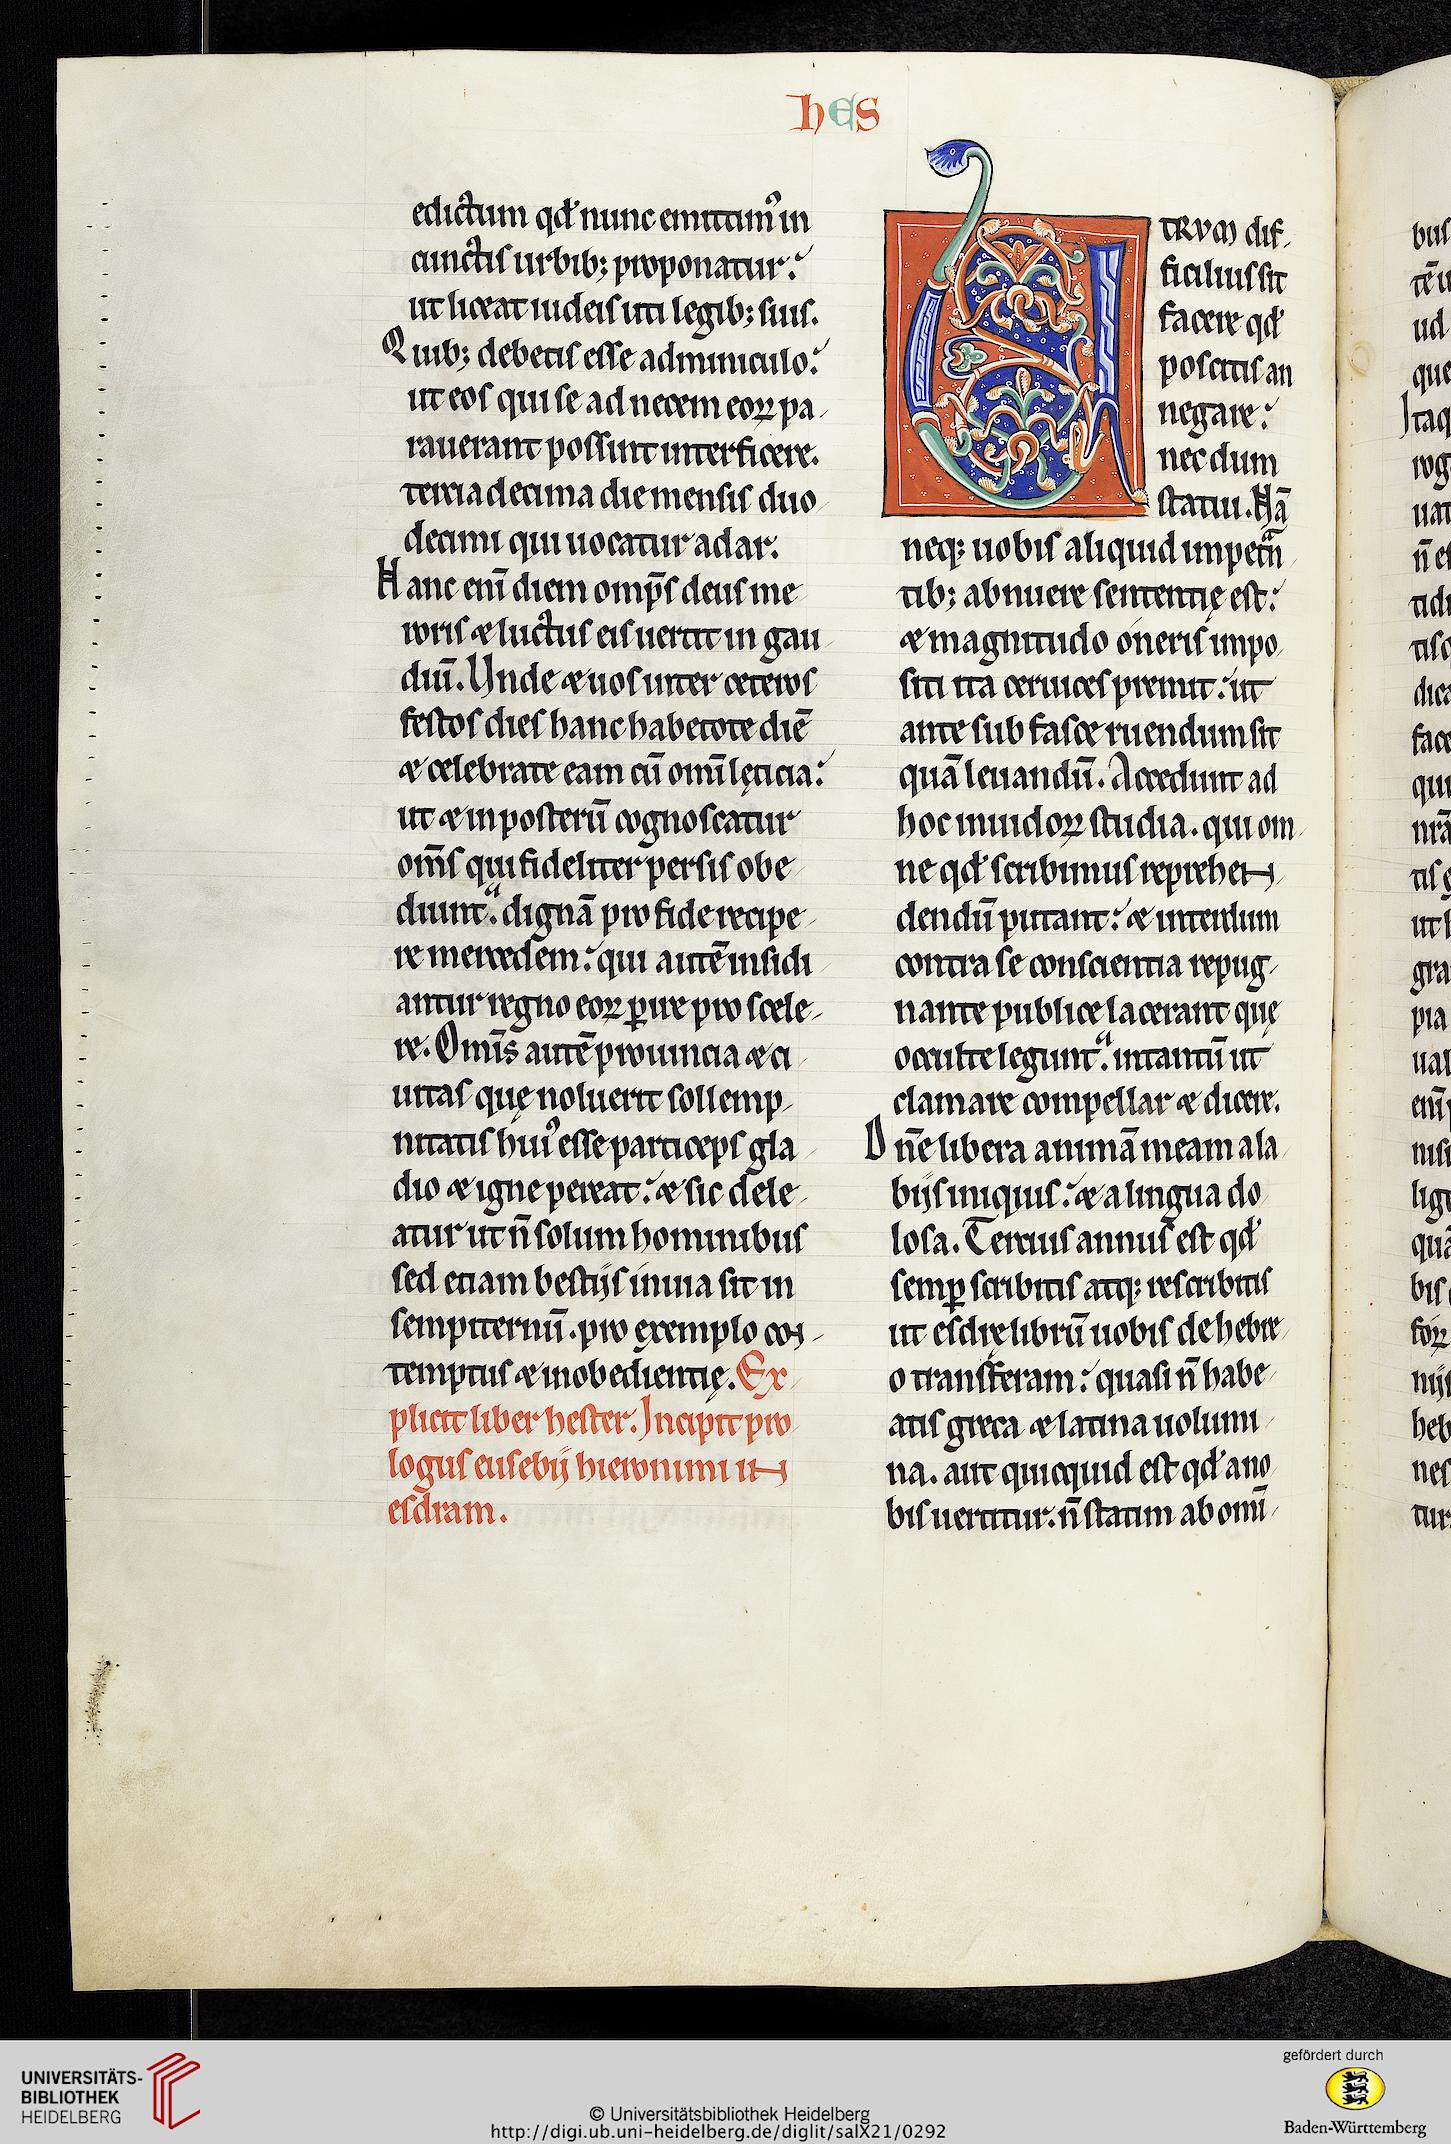 hes
edictum qd̕ nunc emittimꝰ in
cunctis urbib; proponatur:
ut liceat iudeis uti legib; suis.
Quib; debetis esse adminiculo:
ut eos qui se ad necem eoꝝ pa
rauerant possint interficere.
tercia decima die mensis duo
decimi qui uocatur adar.
Hanc eni̅ diem omp̅s deus me
roris & luctus eis uertit in gau
diu̅. Unde & uos inter ceteros
festos dies hanc habetote die̅
& celebrate eam cu̅ omi̅ lęticia:
ut & in posteru̅ cognoscatur
om̅s qui fideliter persis obe
diunt. digna̅ pro fide recipe
re mercedem: qui aute̅ insidi
antur regno eoꝝ ꝑire pro scele
re. Omi̅s aute̅ prouincia & ci
uitas quę noluerit sollemp
nitatis huiꝰ esse particeps gla
dio & igne pereat: & sic dele
atur ut n̅ solum hominibus
sed etiam bestijs inuia sit in
sempiternu̅. pro exemplo con
temptus & inobedientię. Ex
plicit liber hester. Incipit pro
logus eusebij hieronimi in
esdram.
UTRVM dif
ficilius sit
facere qd̕
poscitis an
negare:
nec dum
statui. Na̅
neq; uobis aliquid impetn̅
tib; abnuere sententię est:
& magnitudo oneris impo
siti ita ceruices premit: ut
ante sub fasce ruendum sit
qua̅ leuandu̅. Accedunt ad
hoc inuidoꝝ studia. qui om
ne qd̕ scribimus reprehen
dendu̅ putant: & interdum
contra se conscientia repug
nante publice lacerant quę
occulte legunt. intantu̅ ut
clamare compellar & dicere.
Dn̅e libera anima̅ meam a la
bijs iniquis: & a lingua do
losa. Tercius annus est qd̕
semꝑ scribitis atq; rescribitis
ut esdrę libru̅ uobis de hebre
o transferam: quasi n̅ habe
atis greca & latina uolumi
na. aut quicquid est qd̕ a no
bis uertitur. n̅ statim ab omi̅
UNIVERSITÄTS-
BIBLIOTHEK
HEIDELBERG
© Universitätsbibliothek Heidelberg
http://digi.ub.uni-heidelberg.de/diglit/salX21/0292
gefördert durch
Baden-Württemberg